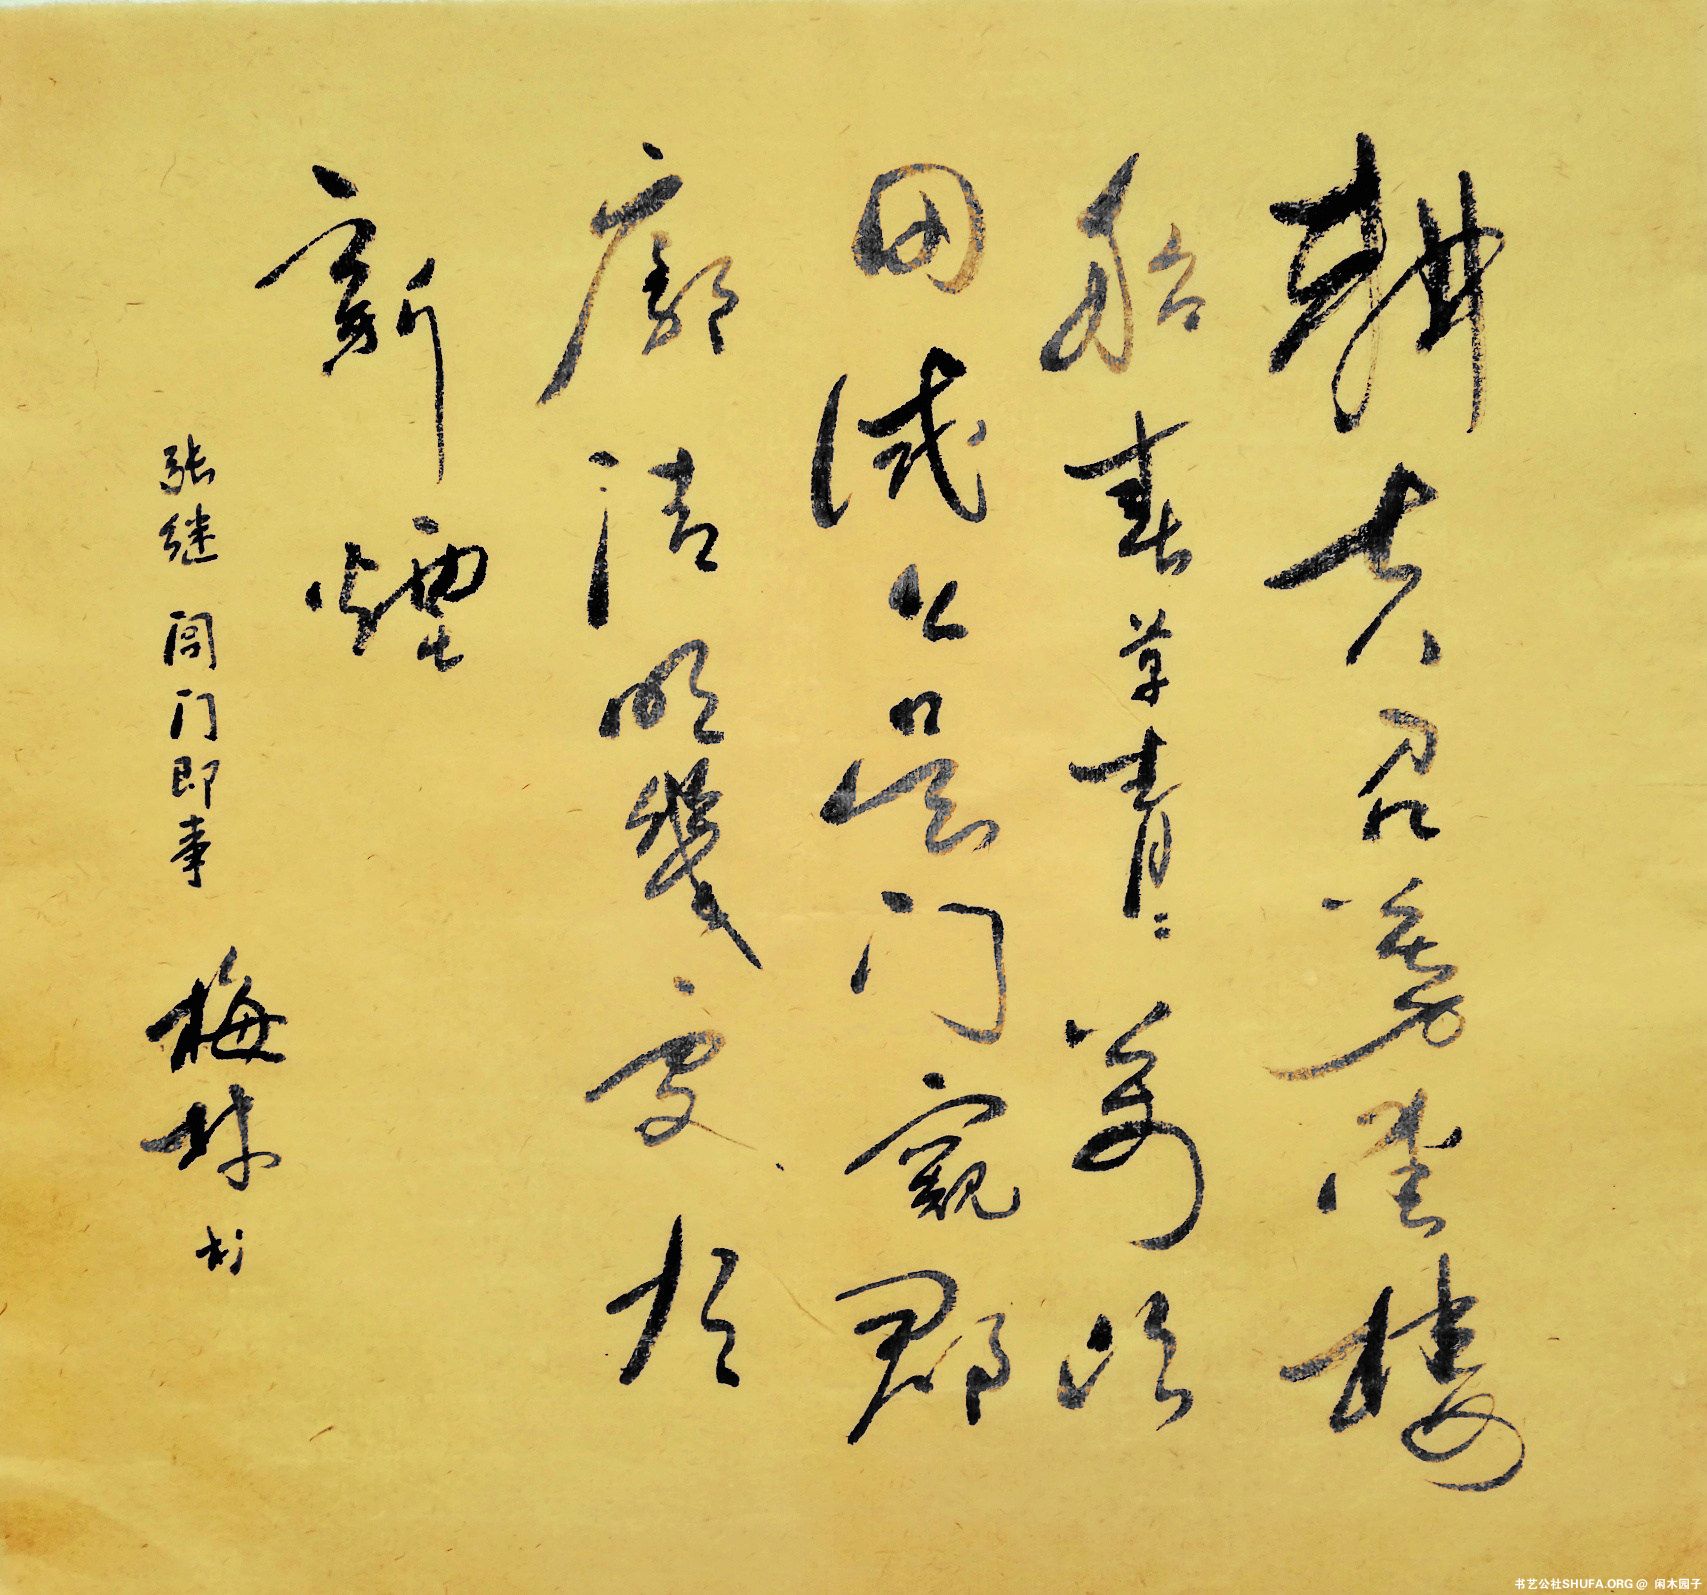 耕夫召募逐楼
船春草青〻萬頃
田试上吴门窥郡
廓清明幾處扵
新煙
张继 阊门即事 梅
书艺公社SHUFA.ORG @ 闲木园子